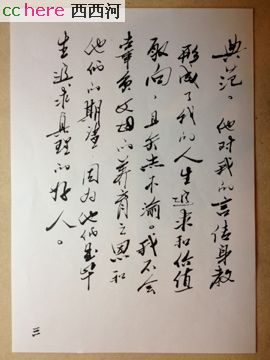 cchere 西西河
典范。他对我的言传身教
形成了我的人生追求和价值
取向，且矢志不渝。我不会
辜负父母的养育之恩和
他们的期望，因为他们是毕
生追求真理的好人。
三